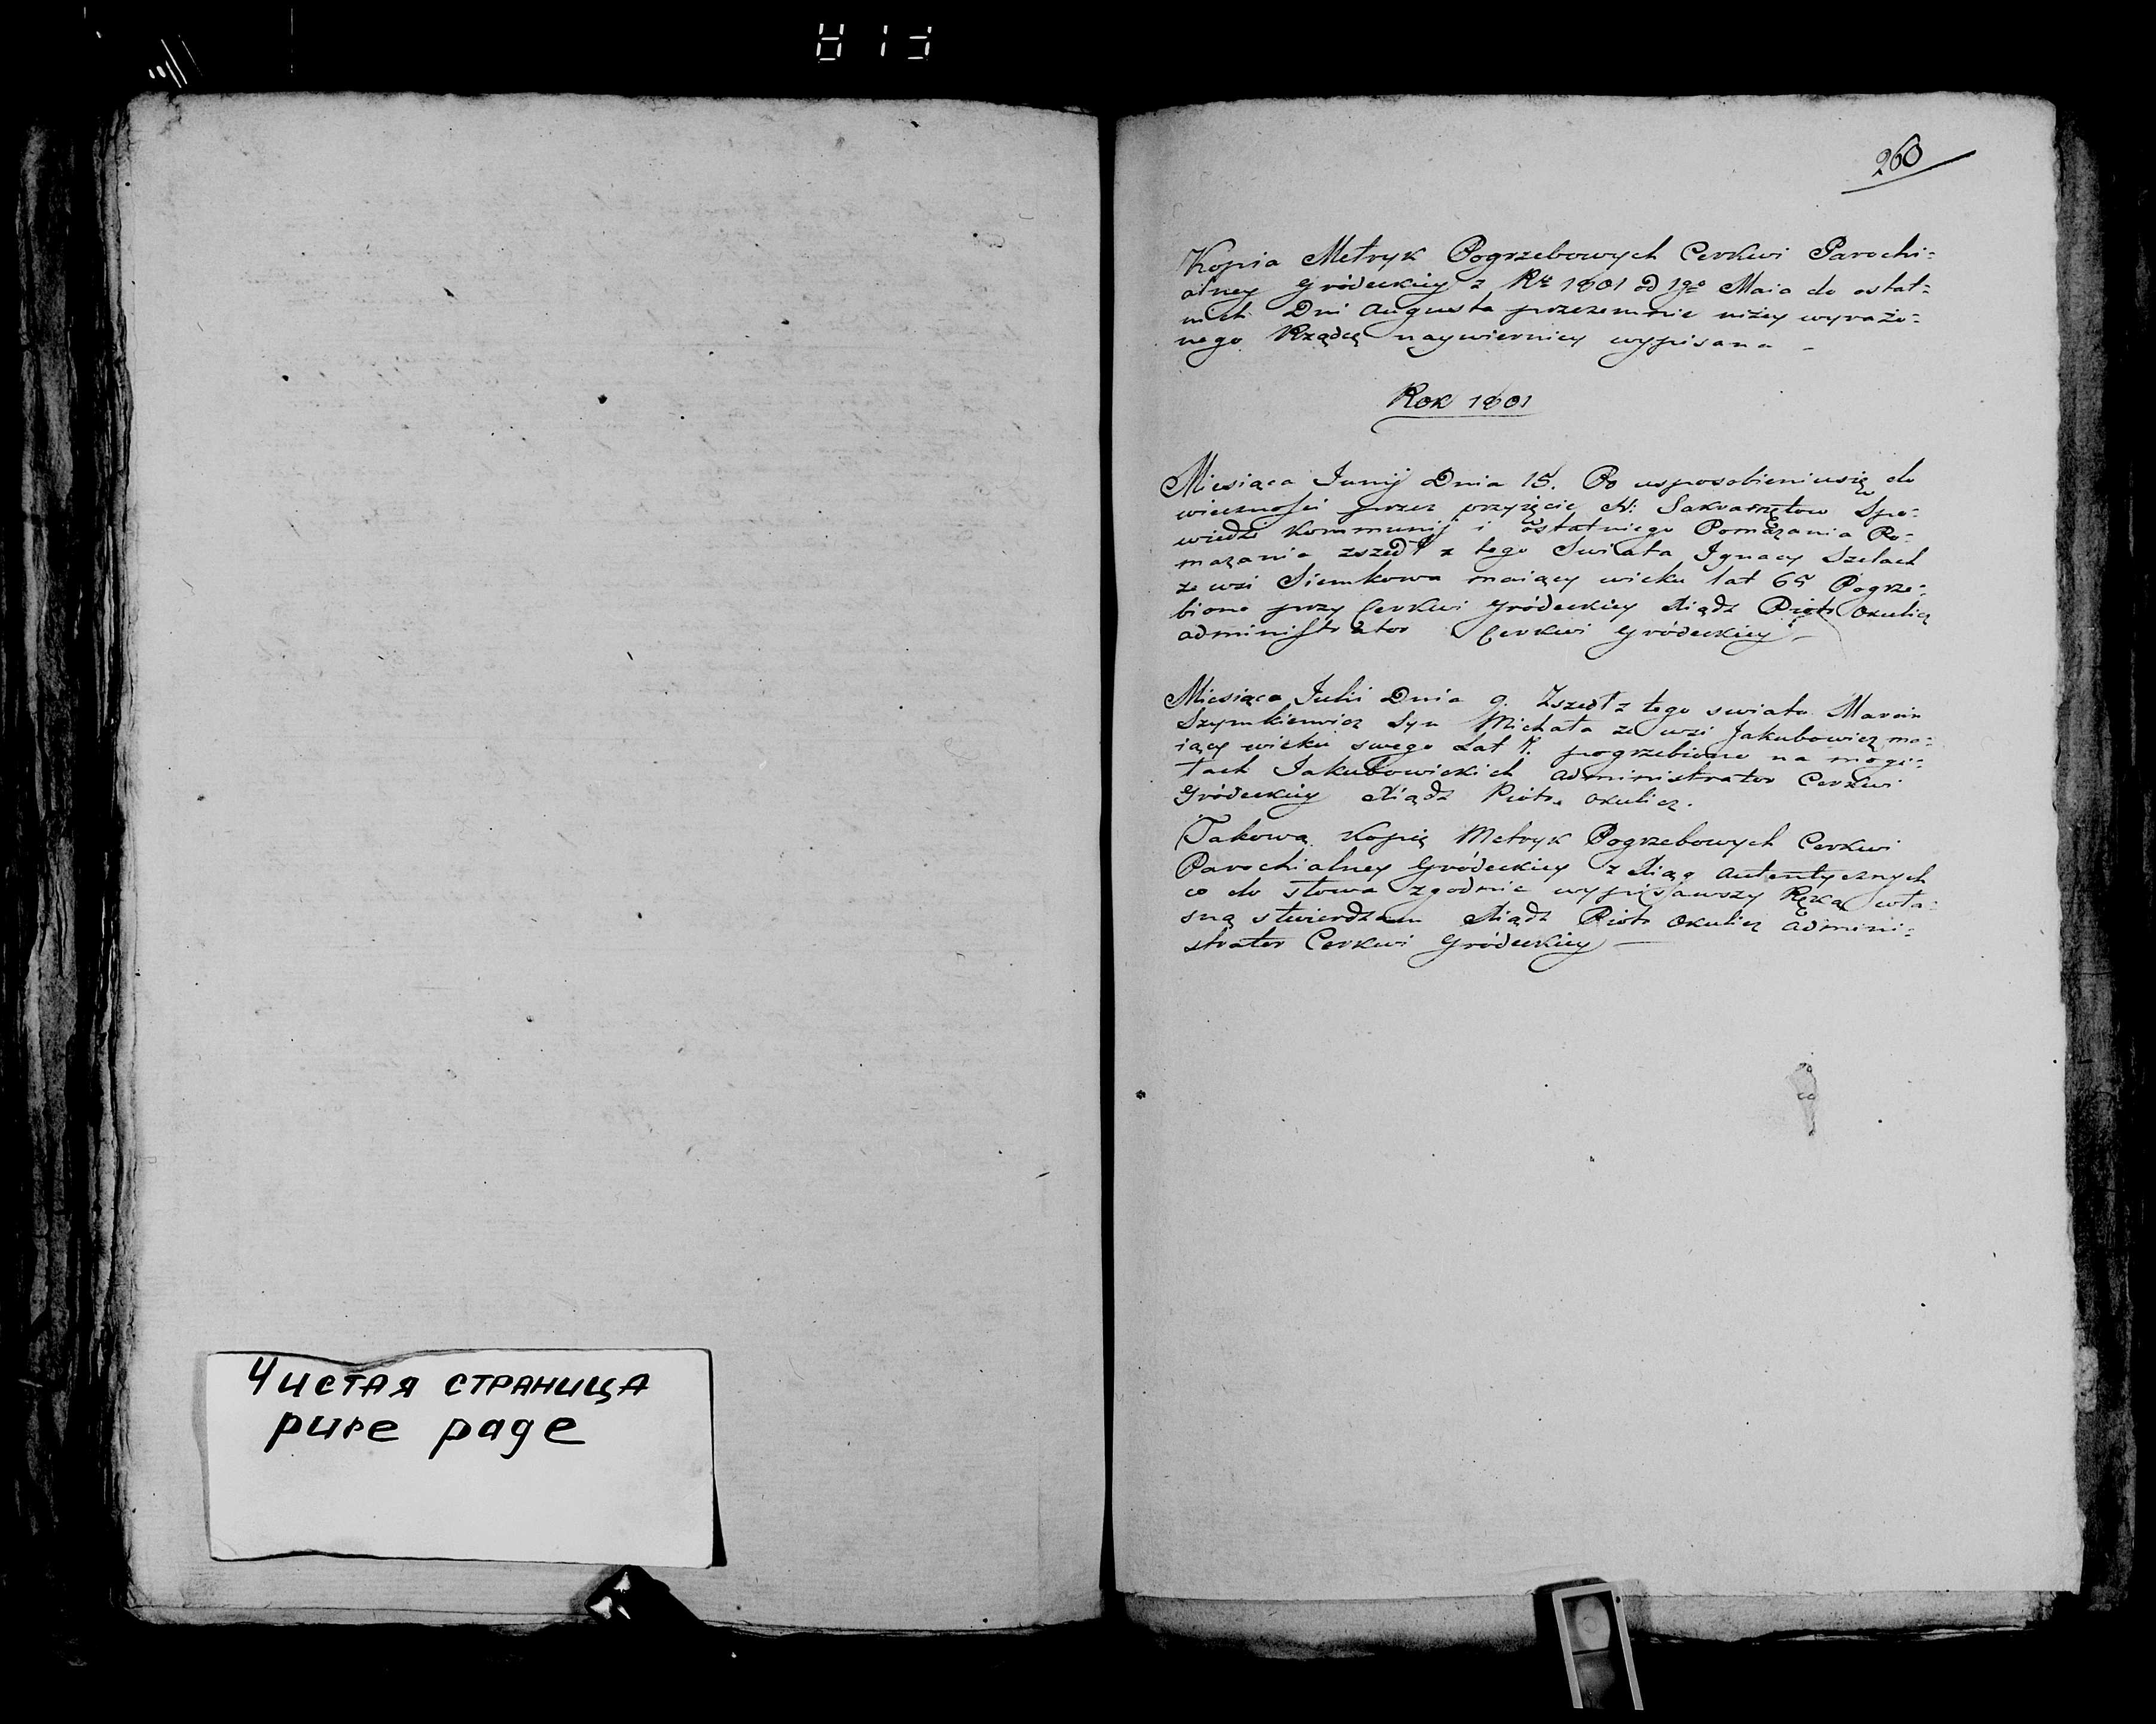 Чистая страница
pure page
260
Kopia Metryk Pogrzebowych Cerkwi Parochi=
alney Gródeckiey z Rku 1801 od 1go Maia do ostat=
nich Dni Augusta przezemnie niżey wyrażo=
nego Rządcę naywierniey wypisana
Rok 1801
Miesiąca Junij Dnia 15. Po usposobieniu się do
wieczności przez przyięcie SS: Sakramętow Spo=
wiedzi Kommunij i ostatniego Pomazania Po=
mazania zszedł z tego Swiata Ignacy Szelach
ze wsi Siemkowa maiący wieku lat 65 Pogrze=
biono przy Cerkwi Gródeckiey Xiądz Piotr Okulicz
administrator Cerkwi Gródeckiey
Miesiąca Julii Dnia 9. Zszedł z tego swiata Marcin
Szymkiewicz Syn Michała ze wsi Jakubowicz ma=
iący wieku swego Lat pogrzebiono na mogi=
łach Jakubowickich administrator Cerkwi
Gródeckiey Xiądz Piotr Okulicz.
Takową Kopię Metryk Pogrzebowych Cerkwi
Parochialney Gródeckiey z Xiąg Autentycznych
co do słowa zgodnie wypisawszy Ręką wła=
sną stwierdzam Xiądz Piotr Okulicz admini=
strator Cerkwi Gródeckiey